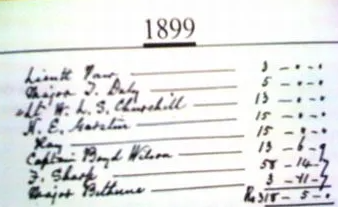 1899
Lieutt 3 - " - "
Major J. Daly 5 - " - "
Lt. W. L. S. Churchill 13 - " - "
H. E. 15 - " - "
Ray 15 - " - "
Captain Boyd Wilson 13 - 6 - 9
J. Sharp 58 - 14 - 7
Major Bethune 3 - 11 - 7
Rs 318 - 5 - "